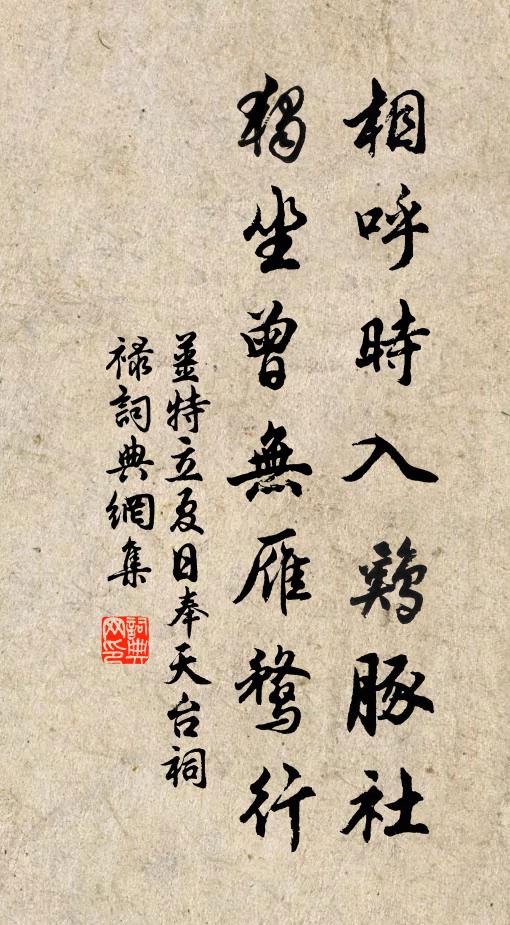 相呼時入鷄豚社
獨坐曾無雁鶩行
姜特立夏日奉天台祠
祿詞典網集
詞典
网印